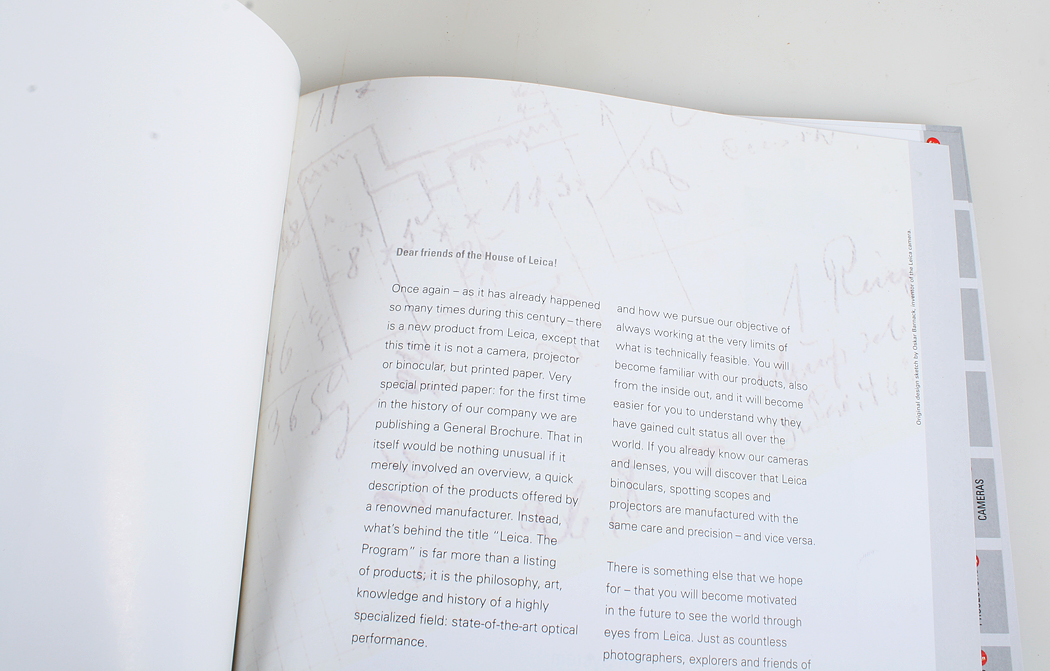 Dear friends of the House of Leica!
Once again – as it has already happened
so many times during this century – there
is a new product from Leica, except that
this time it is not a camera, projector
or binocular, but printed paper. Very
special printed paper: for the first time
in the history of our company we are
publishing a General Brochure. That in
itself would be nothing unusual if it
merely involved an overview, a quick
description of the products offered by
a renowned manufacturer. Instead,
what's behind the title “Leica. The
Program” is far more than a listing
of products; it is the philosophy, art,
knowledge and history of a highly
specialized field: state-of-the-art optical
performance.
and how we pursue our objective of
always working at the very limits of
what is technically feasible. You will
become familiar with our products, also
from the inside out, and it will become
easier for you to understand why they
have gained cult status all over the
world. If you already know our cameras
and lenses, you will discover that Leica
binoculars, spotting scopes and
projectors are manufactured with the
same care and precision – and vice versa.
There is something else that we hope
for – that you will become motivated
in the future to see the world through
eyes from Leica. Just as countless
photographers, explorers and friends of
Original design sketch by Oskar Barnack, inventor of the Leica camera
CAMERAS
11
11,3
8